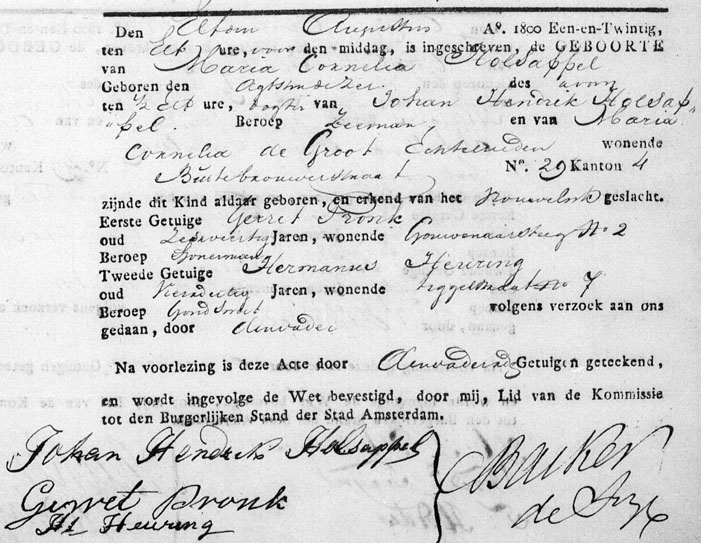 Den Elfden Augustus A°. 1800 Een-en-Twintig,
ten Elf ure, voor den middag, is ingeschreven, de GEBOORTE
van Maria Cornelia Holsappel
Geboren den Agtsten dezer des avonds
ten ½ Elf ure, dogter van Johan Hendrik Holsap"
"pel. Beroep Zeeman, en van Maria
Cornelia de Groot Echtelieden wonende
Buitebrouwerstraat N°. 29 Kanton 4
zijnde dit Kind aldaar geboren, en erkend van het Vrouwelijk geslacht.
Eerste Getuige Gerret Pronk
oud Zesenveertig Jaren, wonende Gouwenaarsteeg No 2
Beroep
Tweede Getuige Hermanus Heuring
oud Jaren, wonende No 7
Beroep Goudsmit volgens verzoek aan ons
gedaan, door den vader
Na voorlezing is deze Acte door den vader en de Getuigen geteekend,
en wordt ingevolge de Wet bevestigd, door mij, Lid van de Kommissie
tot den Burgerlijken Stand der Stad Amsterdam.
Johan Hendrik Holsappel
Gerret Pronk
Hs Heuring
Backer